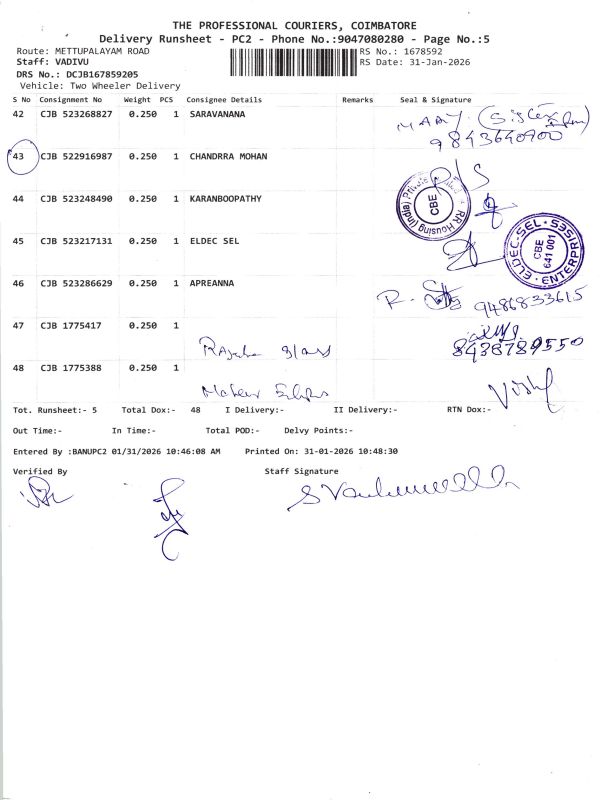 THE PROFESSIONAL COURIERS, COIMBATORE
Delivery Runsheet - PC2 - Phone No.:9047080280 - Page No.:5
Route: METTUPALAYAM ROAD RS No.: 1678592
Staff: VADIVU RS Date: 31-Jan-2026
DRS No.: DCJB167859205
Vehicle: Two Wheeler Delivery
S No Consignment No Weight PCS Consignee Details Remarks Seal & Signature
42 CJB 523268827 0.250 1 SARAVANANA MARY (Sister
9843640900
43 CJB 522916987 0.250 1 CHANDRRA MOHAN
RR Housing (India) Private CBE
44 CJB 523248490 0.250 1 KARANBOOPATHY
45 CJB 523217131 0.250 1 ELDEC SEL
ELDEC-SEL ENTERPRISES CBE 641 001
46 CJB 523286629 0.250 1 APREANNA R. 9486833615
47 CJB 1775417 0.250 1
8438789550
48 CJB 1775388 0.250 1
Tot. Runsheet:- 5 Total Dox:- 48 I Delivery:- II Delivery:- RTN Dox:-
Out Time:- In Time:- Total POD:- Delvy Points:-
Entered By :BANUPC2 01/31/2026 10:46:08 AM Printed On: 31-01-2026 10:48:30
Verified By Staff Signature